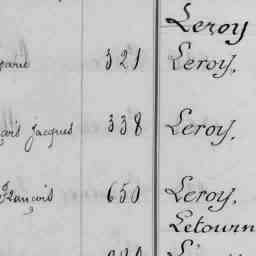 Leroy
321 Leroy,
Jacques 338 Leroy,
François 650 Leroy,
Letourn